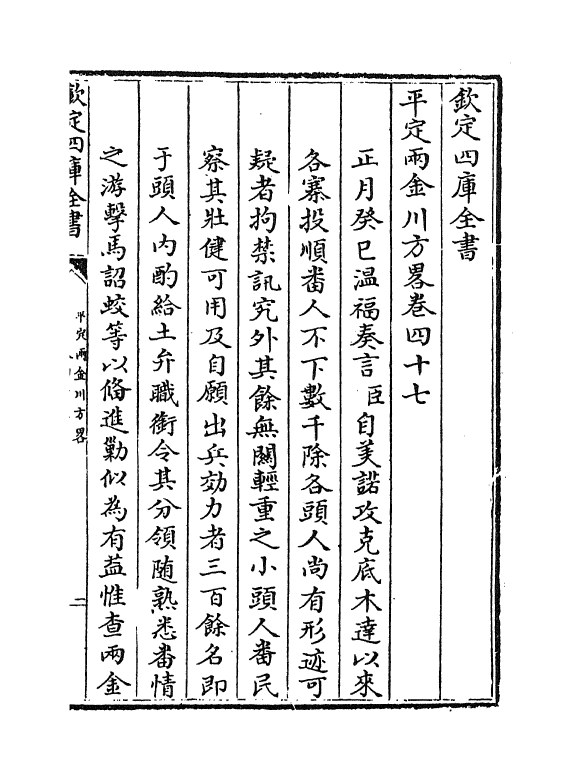 欽定四庫全書
平定兩金川方畧卷四十七
正月癸巳溫福奏言臣自美諾攻克底木達以來
各寨投順番人不下數千除各頭人尚有形迹可
疑者拘禁訊究外其餘無關輕重之小頭人番民
察其壯健可用及自願出兵効力者三百餘名即
于頭人內酌給土弁職銜令其分領隨熟悉番情
之游擊馬詔蛟等以備進勦似為有益惟查兩金
欽定四庫全書
平定兩金川方畧